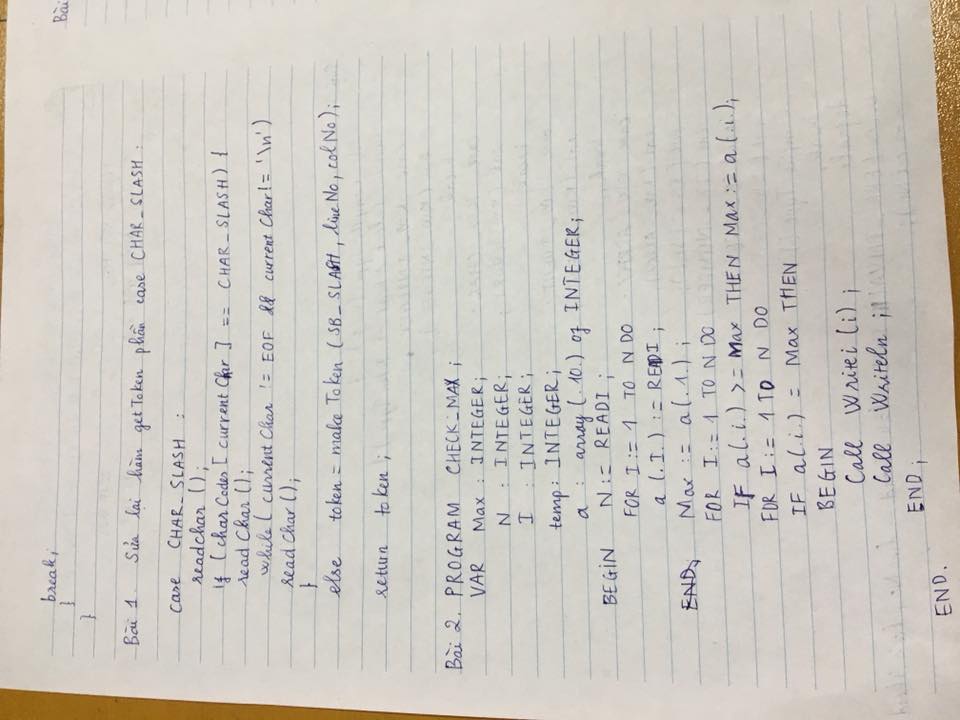 break;
}
}
Bài 1. Sửa lại hàm getToken phần case CHAR_SLASH :
case CHAR_SLASH :
readchar ();
if (charCodes [currentChar] == CHAR_SLASH) {
readChar ();
while (currentChar != EOF && currentChar != '\n')
readChar ();
}
else token = makeToken (SB_SLASH, lineNo, colNo);
return token ;
Bài 2. PROGRAM CHECK_MAX ;
VAR Max : INTEGER ;
N : INTEGER ;
I : INTEGER ;
temp : INTEGER ;
a : array (. 10.) of INTEGER ;
BEGIN N := READI ;
FOR I := 1 TO N DO
a (.I.) := READI ;
END;
Max := a (. 1.) ;
FOR I := 1 TO N DO
IF a(.i.) >= Max THEN Max := a (.i.);
FOR I := 1 TO N DO
IF a(.i.) = Max THEN
BEGIN
Call Writei (i) ;
Call Writeln ;
END ;
END.
Bài